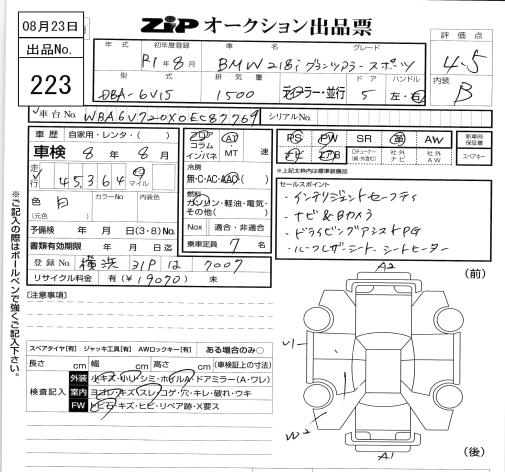 08月23日
ZIP オークション出品票
出品No.
223
年式
初年度登録
車名
グレード
評価点
R1年8月
BMW 218i グランツアラー スポーツ
4.5
型式
排気量
ドア
ハンドル
内装
DBA-6V15
1500
ディーラー・並行
5
左・右
B
車台No.
WBA6V720X0EC87769
シリアルNo.
車歴
自家用・レンタ・( )
車検
8年8月
走行
45,364
マイル
色
白
カラーNo.
内装色
(元色 )
予備検 年 月 日(3・8)No.
書類有効期限 年 月 日迄
登録No.
横浜 31P ほ 7007
リサイクル料金 有 (¥19070) 未
フロア
コラム
インパネ
AT
・MT
速
冷房
無・C・AC・AAC・( )
燃料
ガソリン・軽油・電気・
その他( )
Nox
適合・非適合
乗車定員
7
名
PS
PW
SR
革
AW
新車時
保証書
エアB
TVチューナー
社外
ナビ
社外
AW
スペアキー
※上記太枠内は標準装備品
セールスポイント
・インテリジェントセーフティ
・ナビ&Bカメラ
・ドライビングアシストPG
・ルーフレザーシート シートヒーター
※ご記入の際はボールペンで強くご記入下さい。
(注意事項)
スペアタイヤ[有] ジャッキ工具[有] AWロックキー[有] ある場合のみ○
長さ cm 幅 cm 高さ cm (車検証上の寸法)
検査記入
外装
小キズ・小U・シミ・ホイルA・ドアミラー(A・ワレ)
室内
ヨゴレ・キズ・スレ・コゲ・穴・キレ・破れ・ウキ
FW
トビ石・キズ・ヒビ・リペア跡・X要ス
(前)
A2
U1
W2
A1
(後)